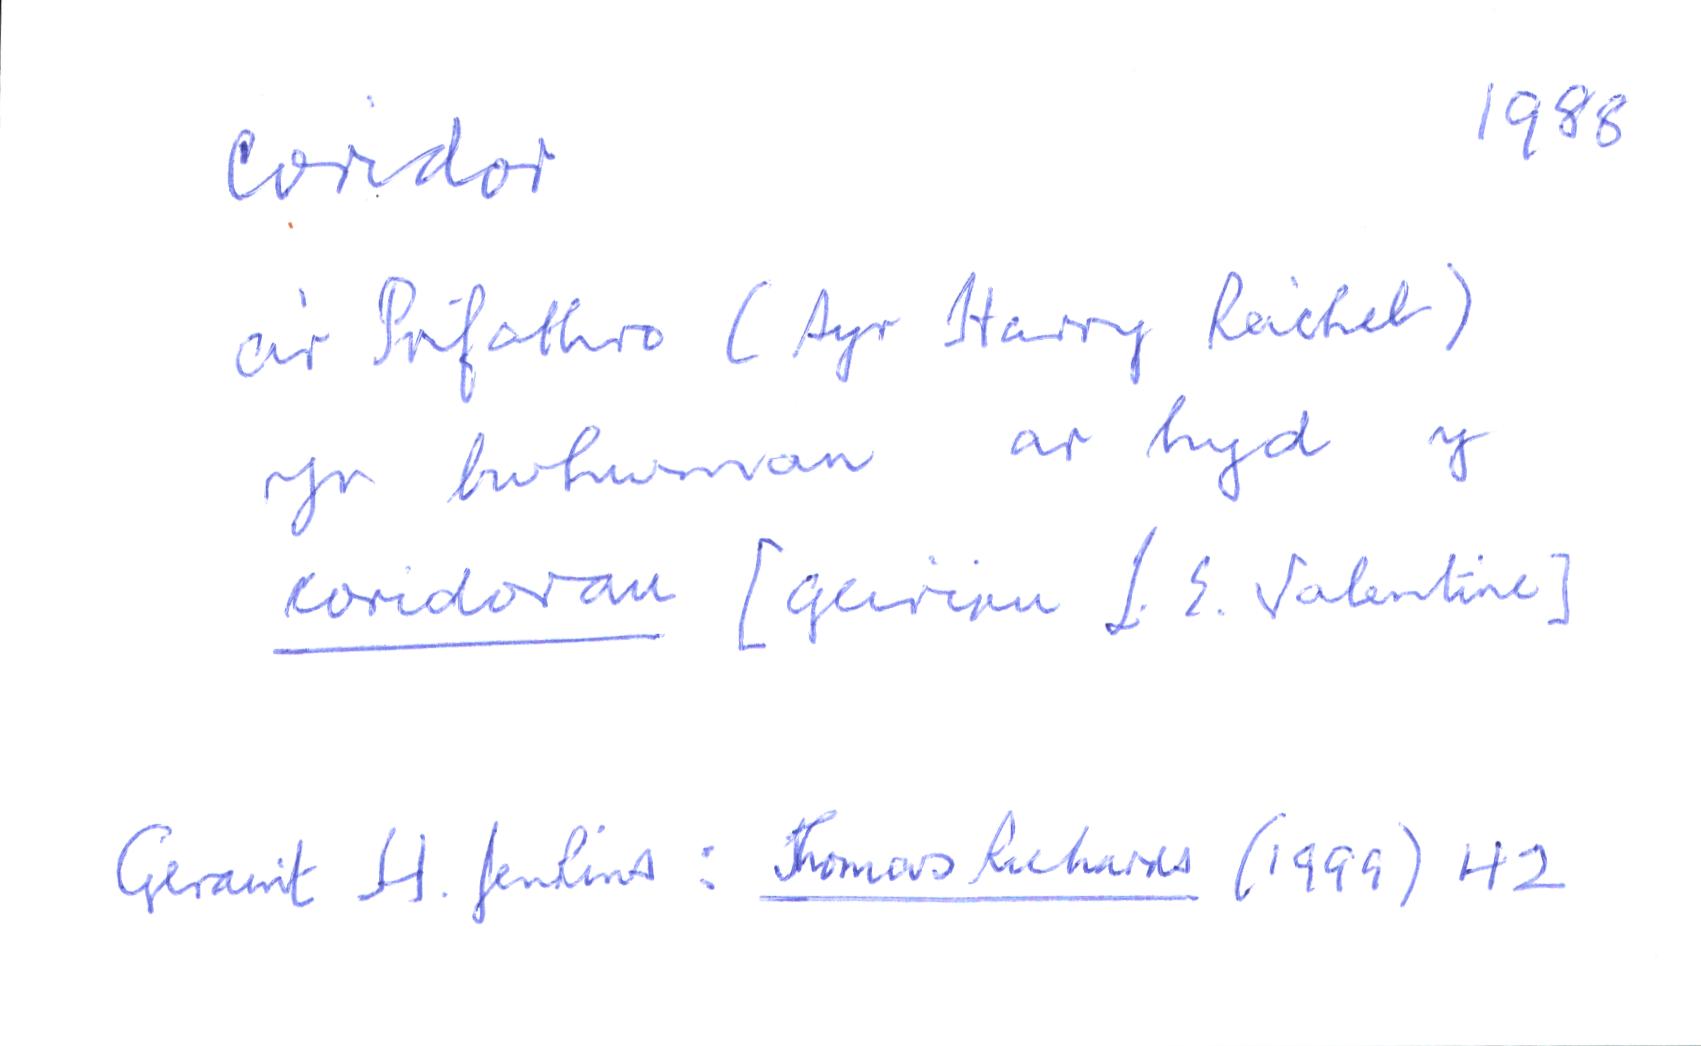 coridor 1988
a'r Prifathro (Syr Harry Reichel)
yn hwhwman ar hyd y
coridorau [geiriau L. E. Valentine]
Geraint H. Jenkins: Thomas Richards (1999) 42